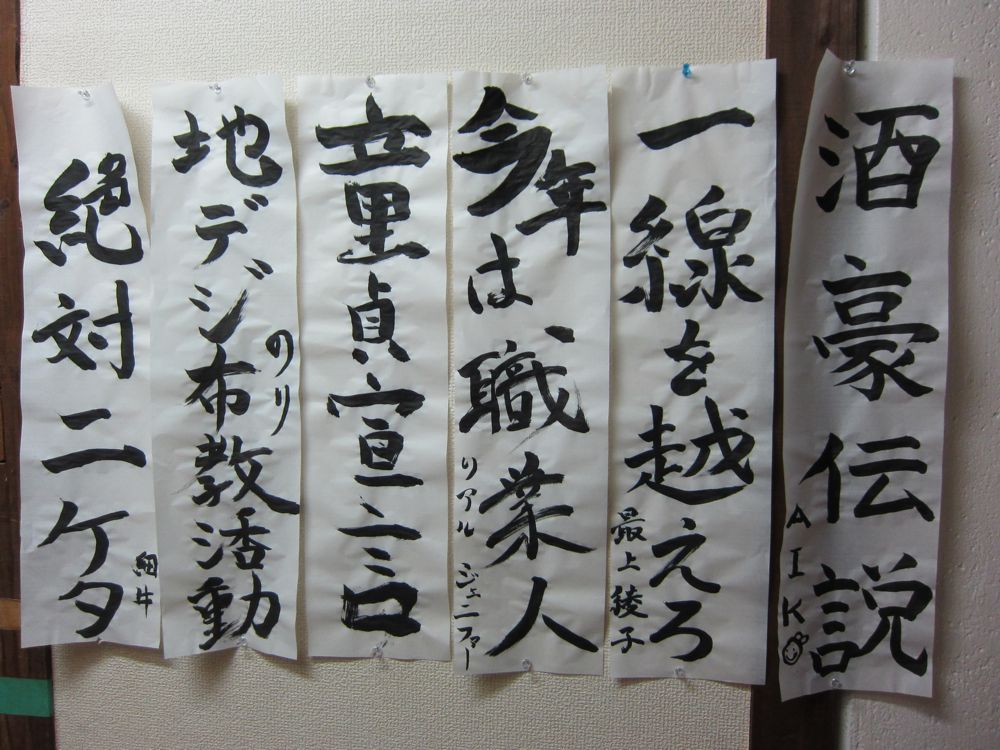 酒豪伝説
AIKO
一線を越えろ
最上綾子
今年は職業人
リアルジェニファー
童貞宣言
地デジ布教活動
のり
絶対二ケタ
細井